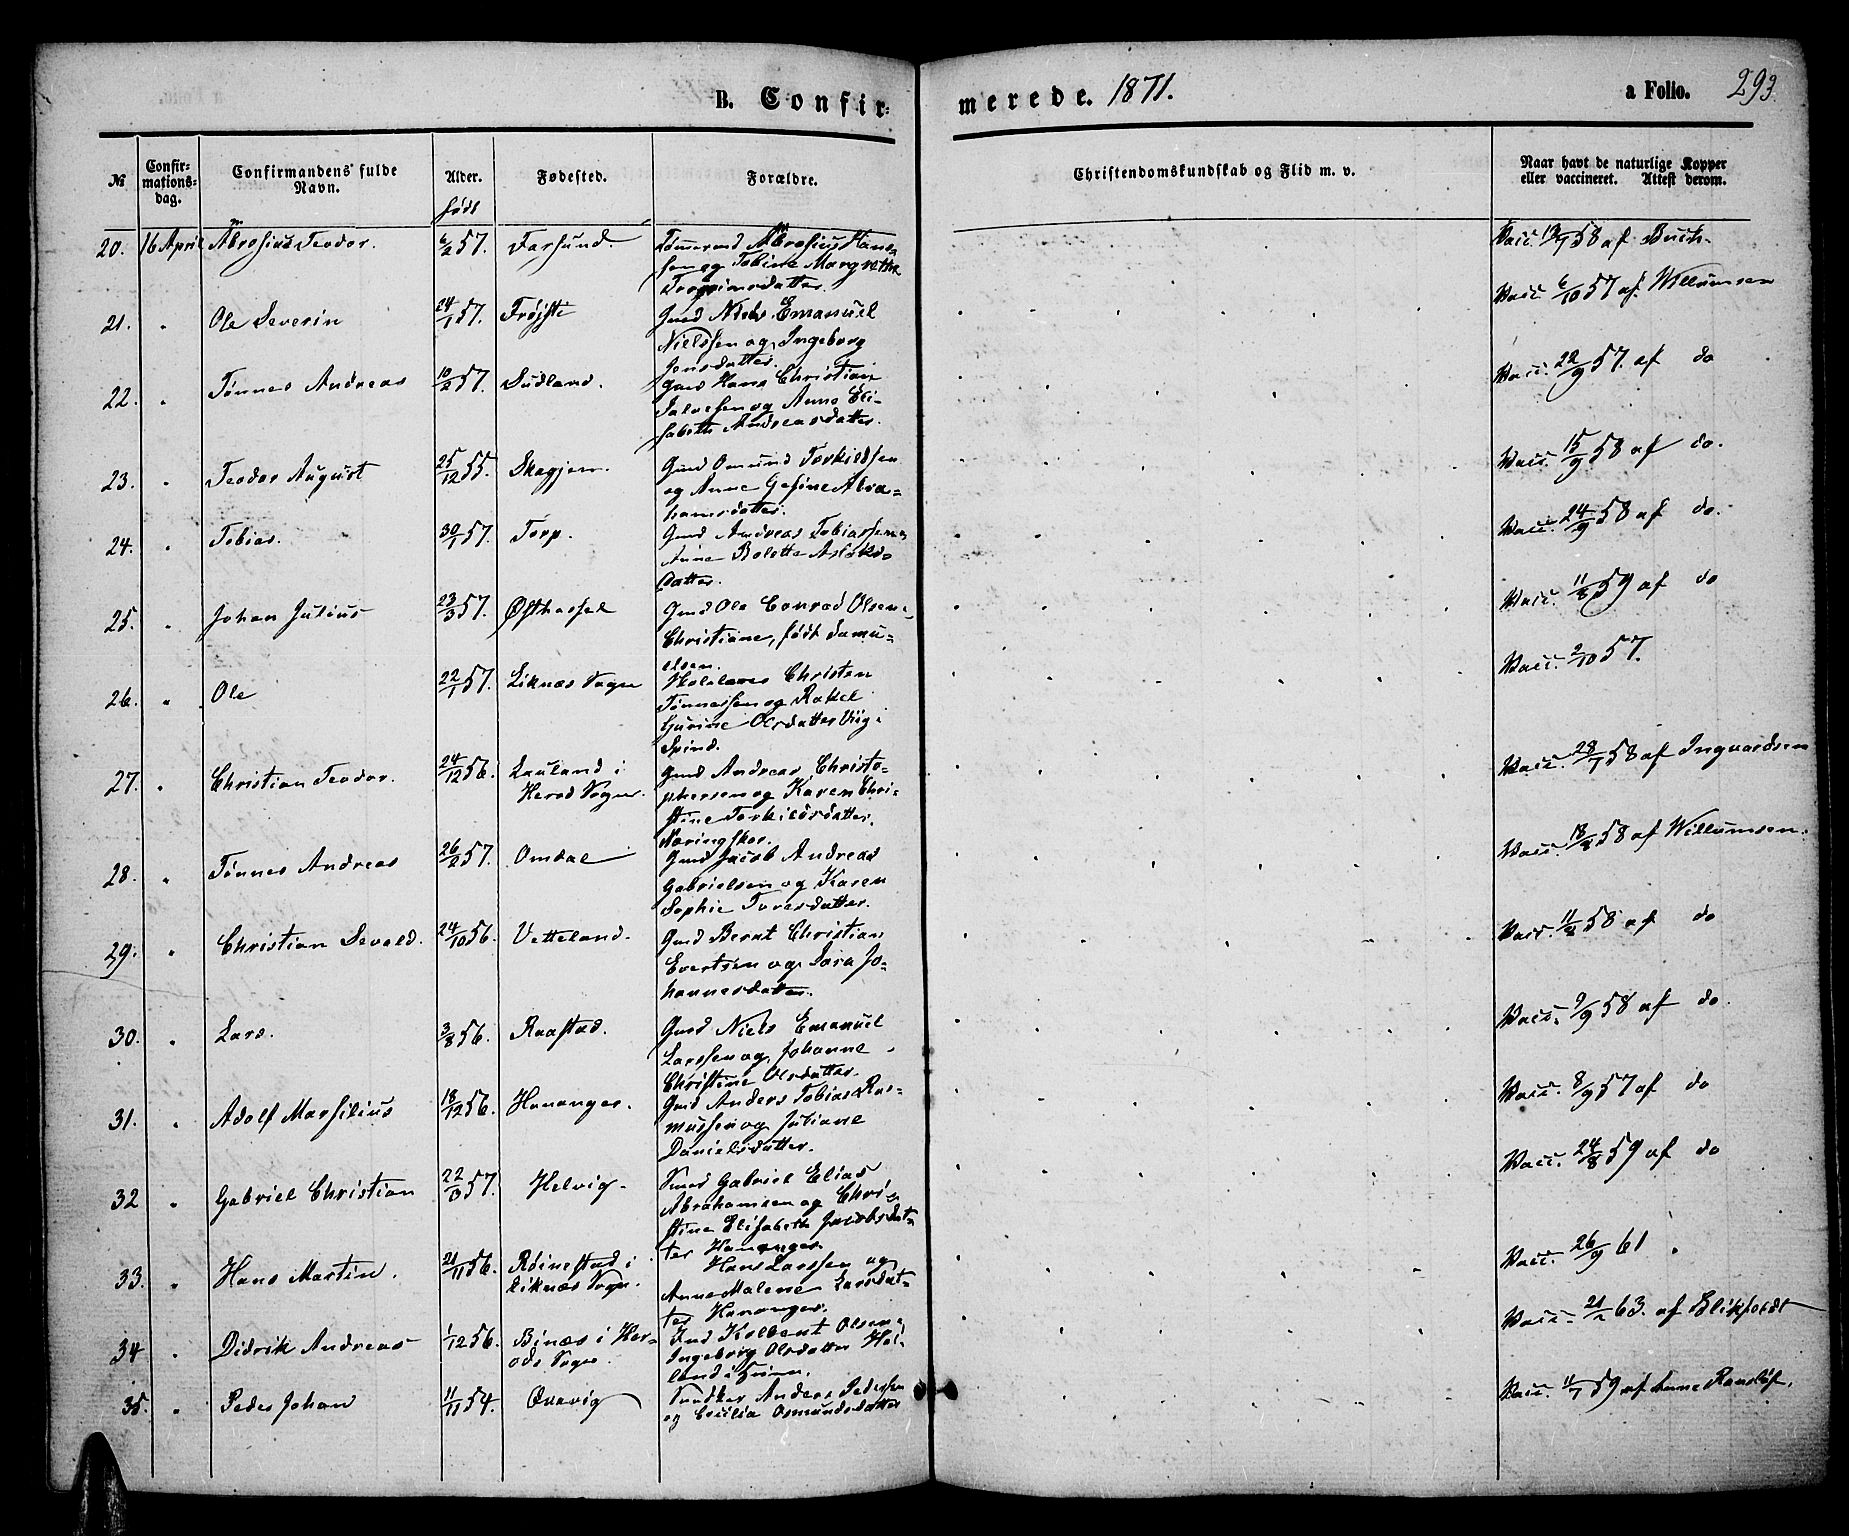 B. Confirmerede. 1871. a Folio. 293
№ Confirmationsdag. Confirmandens fulde Navn. Alder. Fødested. Forældre. Christendomskundskab og Flid m. v. Naar havt de naturlige Kopper eller vaccineret. Attest derom.
født
20. 16 April Ambrosius Teodor. 6/2 57. Farsund. Tømmermd Ambrosius Han- Vacc. 13/7 58 af Buch.
sen og Tobine Margrethe
datter.
21. " Ole Severin 24/1 57. Frøjsti Gmd Niels Emanuel Vacc. 6/10 57 af Willumsen
Nielssen og Ingeborg
Jonsdatter.
22. " Tønnes Andreas 10/2 57. Sudland. Gmd Hans Christian Vacc. 22/9 57. af do
Salvesen og Anne Eli-
sabeth Andreasdatter.
23. " Teodor August 25/12 55. Skegjem. Gmd Omund Torkildsen Vacc. 15/9 58 af do.
og Anne Gesine Abra-
hamsdatter.
24. " Tobias. 30/1 57. Torp. Gmd Andreas Tobiassen og Vacc. 24/9 58 af do.
Anne Bolette Aslaks-
datter.
25. " Johan Julius 23/3 57. Østhassel Gmd Ole Conrad Olsen og Vacc. 11/8 59 af do
Christiane, født Samu-
elsen.
26. " Ole 22/1 57. Liknæs Sogn Christen Vacc. 2/10 57.
Tønnessen og Rakel
Gurine Olsdatter Viig i
Spind.
27. " Christian Teodor. 24/12 56. Lauland i Gmd Andreas Christo- Vacc. 28/7 58 af Ingvardsen
Herad Sogn. phersen og Karen Chri-
stine Torkildsdatter.
28. " Tønnes Andreas 26/2 57. Omdal Gmd Jacob Andreas Vacc. 18/8 58 af Willumsen.
Gabrielsen og Karen
Sophie Toresdatter.
29. " Christian Sevald. 24/10 56. Vetteland. Gmd Bernt Christian Vacc. 11/8 58 af do
Evertsen og Sara Jo-
hannesdatter.
30. " Lars. 3/8 56. Raastad. Gmd Niels Emanuel Vacc. 9/9 58 af do.
Larssen og Johanne
Christine Olsdatter.
31. " Adolf Marsilius 18/12 56. Hananger. Gmd Anders Tobias Ras- Vacc. 8/9 57 af do
mussen og Juliane
Danielsdatter.
32 " Gabriel Christian 22/3 57. Helvig. Smed Gabriel Elias Vacc. 24/8 59 af do
Abrahamsen og Chri-
stine Elisabeth Jacobsdat-
ter Hananger.
33. " Hans Martin. 21/11 56. Røinestad i Hans Larssen og Vacc. 26/9 61
Liknæs Sogn. Anne Malene Larsdat-
ter Hananger.
34 " Didrik Andreas 1/12 56. Binæs i Her- Ind Kolbent Olsen og Vacc. 63. af Blikfeldt
ads Sogn. Ingeborg Olsdatter Hel-
35. " Peder Johan 11/11 54. Ørevig Anders Pedersen Vacc. 11/7 59 af
og Cecilia Osmundsdatter